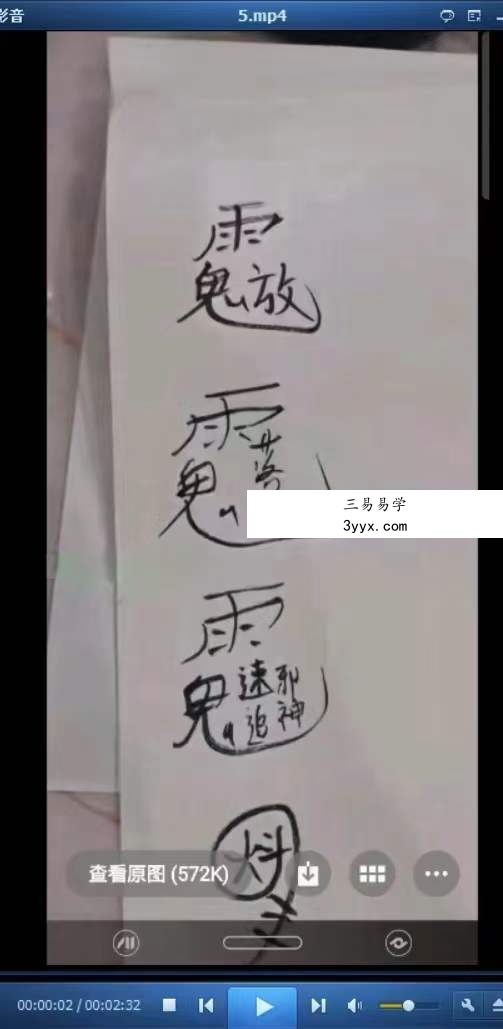 影音
5.mp4
雨
鬼放
雨
鬼
雨
鬼速追邪神
三易易学
3yyx.com
查看原图 (572K)
00:00:02 / 00:02:32